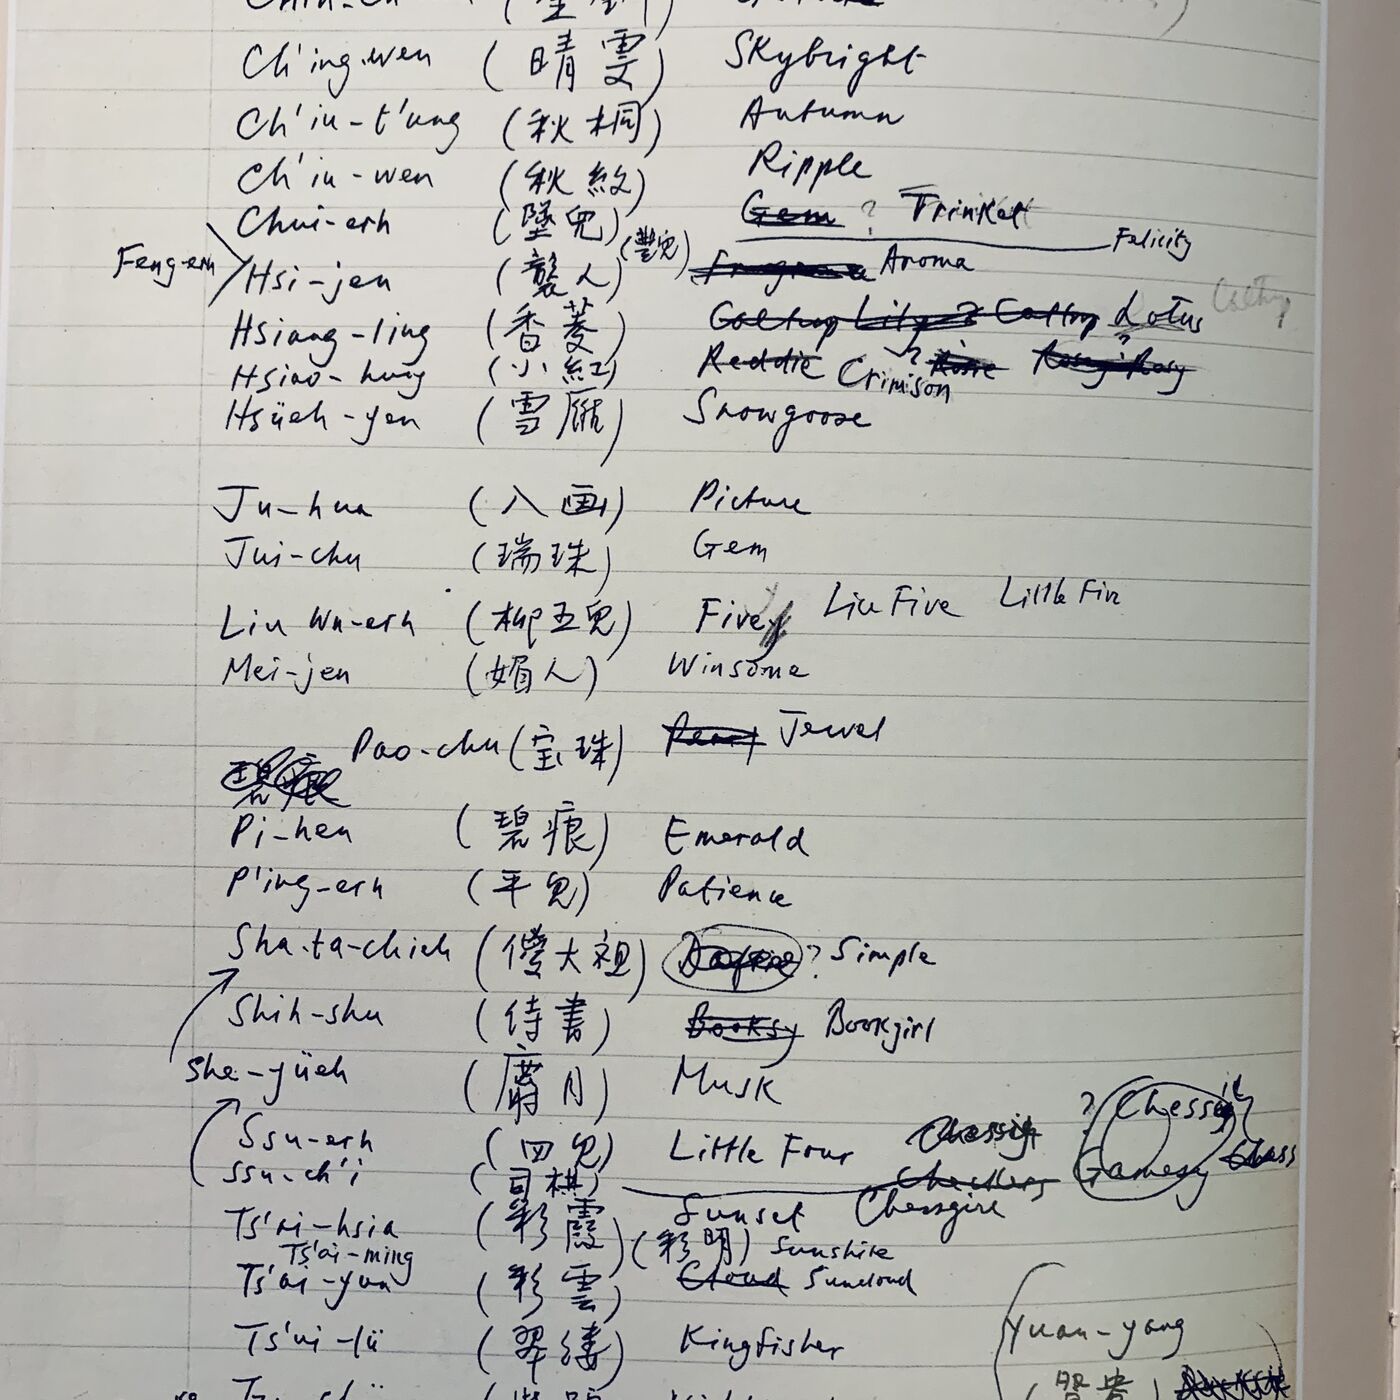 Ch'ing-wen (晴雯) Skybright
Ch'iu-t'ung (秋桐) Autumn
Ch'iu-wen (秋紋) Ripple
Chui-erh (墜兒) Gem ? Trinket
Feng-erh (豐兒) Felicity
Hsi-jen (襲人) Aroma
Hsiang-ling (香菱) Caltrop Lily? Caltrop Lotus Caltrop
Hsiao-hung (小紅) Reddie Crimson ? Rosy
Hsüeh-yen (雪雁) Snowgoose
Ju-hua (入画) Picture
Jui-chu (瑞珠) Gem
Liu Wu-erh (柳五兒) Fivey Liu Five Little Five
Mei-jen (媚人) Winsome
Pao-chu (宝珠) Pearl Jewel
碧痕
Pi-hen (碧痕) Emerald
P'ing-erh (平兒) Patience
Sha-ta-chieh (傻大姐) ? Simple
Shih-shu (待書) Booksy Bookgirl
She-yüeh (麝月) Musk
Ssu-erh (四兒) Little Four
Ssu-ch'i (司棋) Checkers Chessgirl ? Gamesy Chess
Ts'ai-hsia (彩霞) Sunset Chessgirl
Ts'ai-ming (彩明) Sunshine
Ts'ai-yun (彩雲) Cloud Suncloud
Ts'ui-lü (翠縷) Kingfisher
Yuan-yang